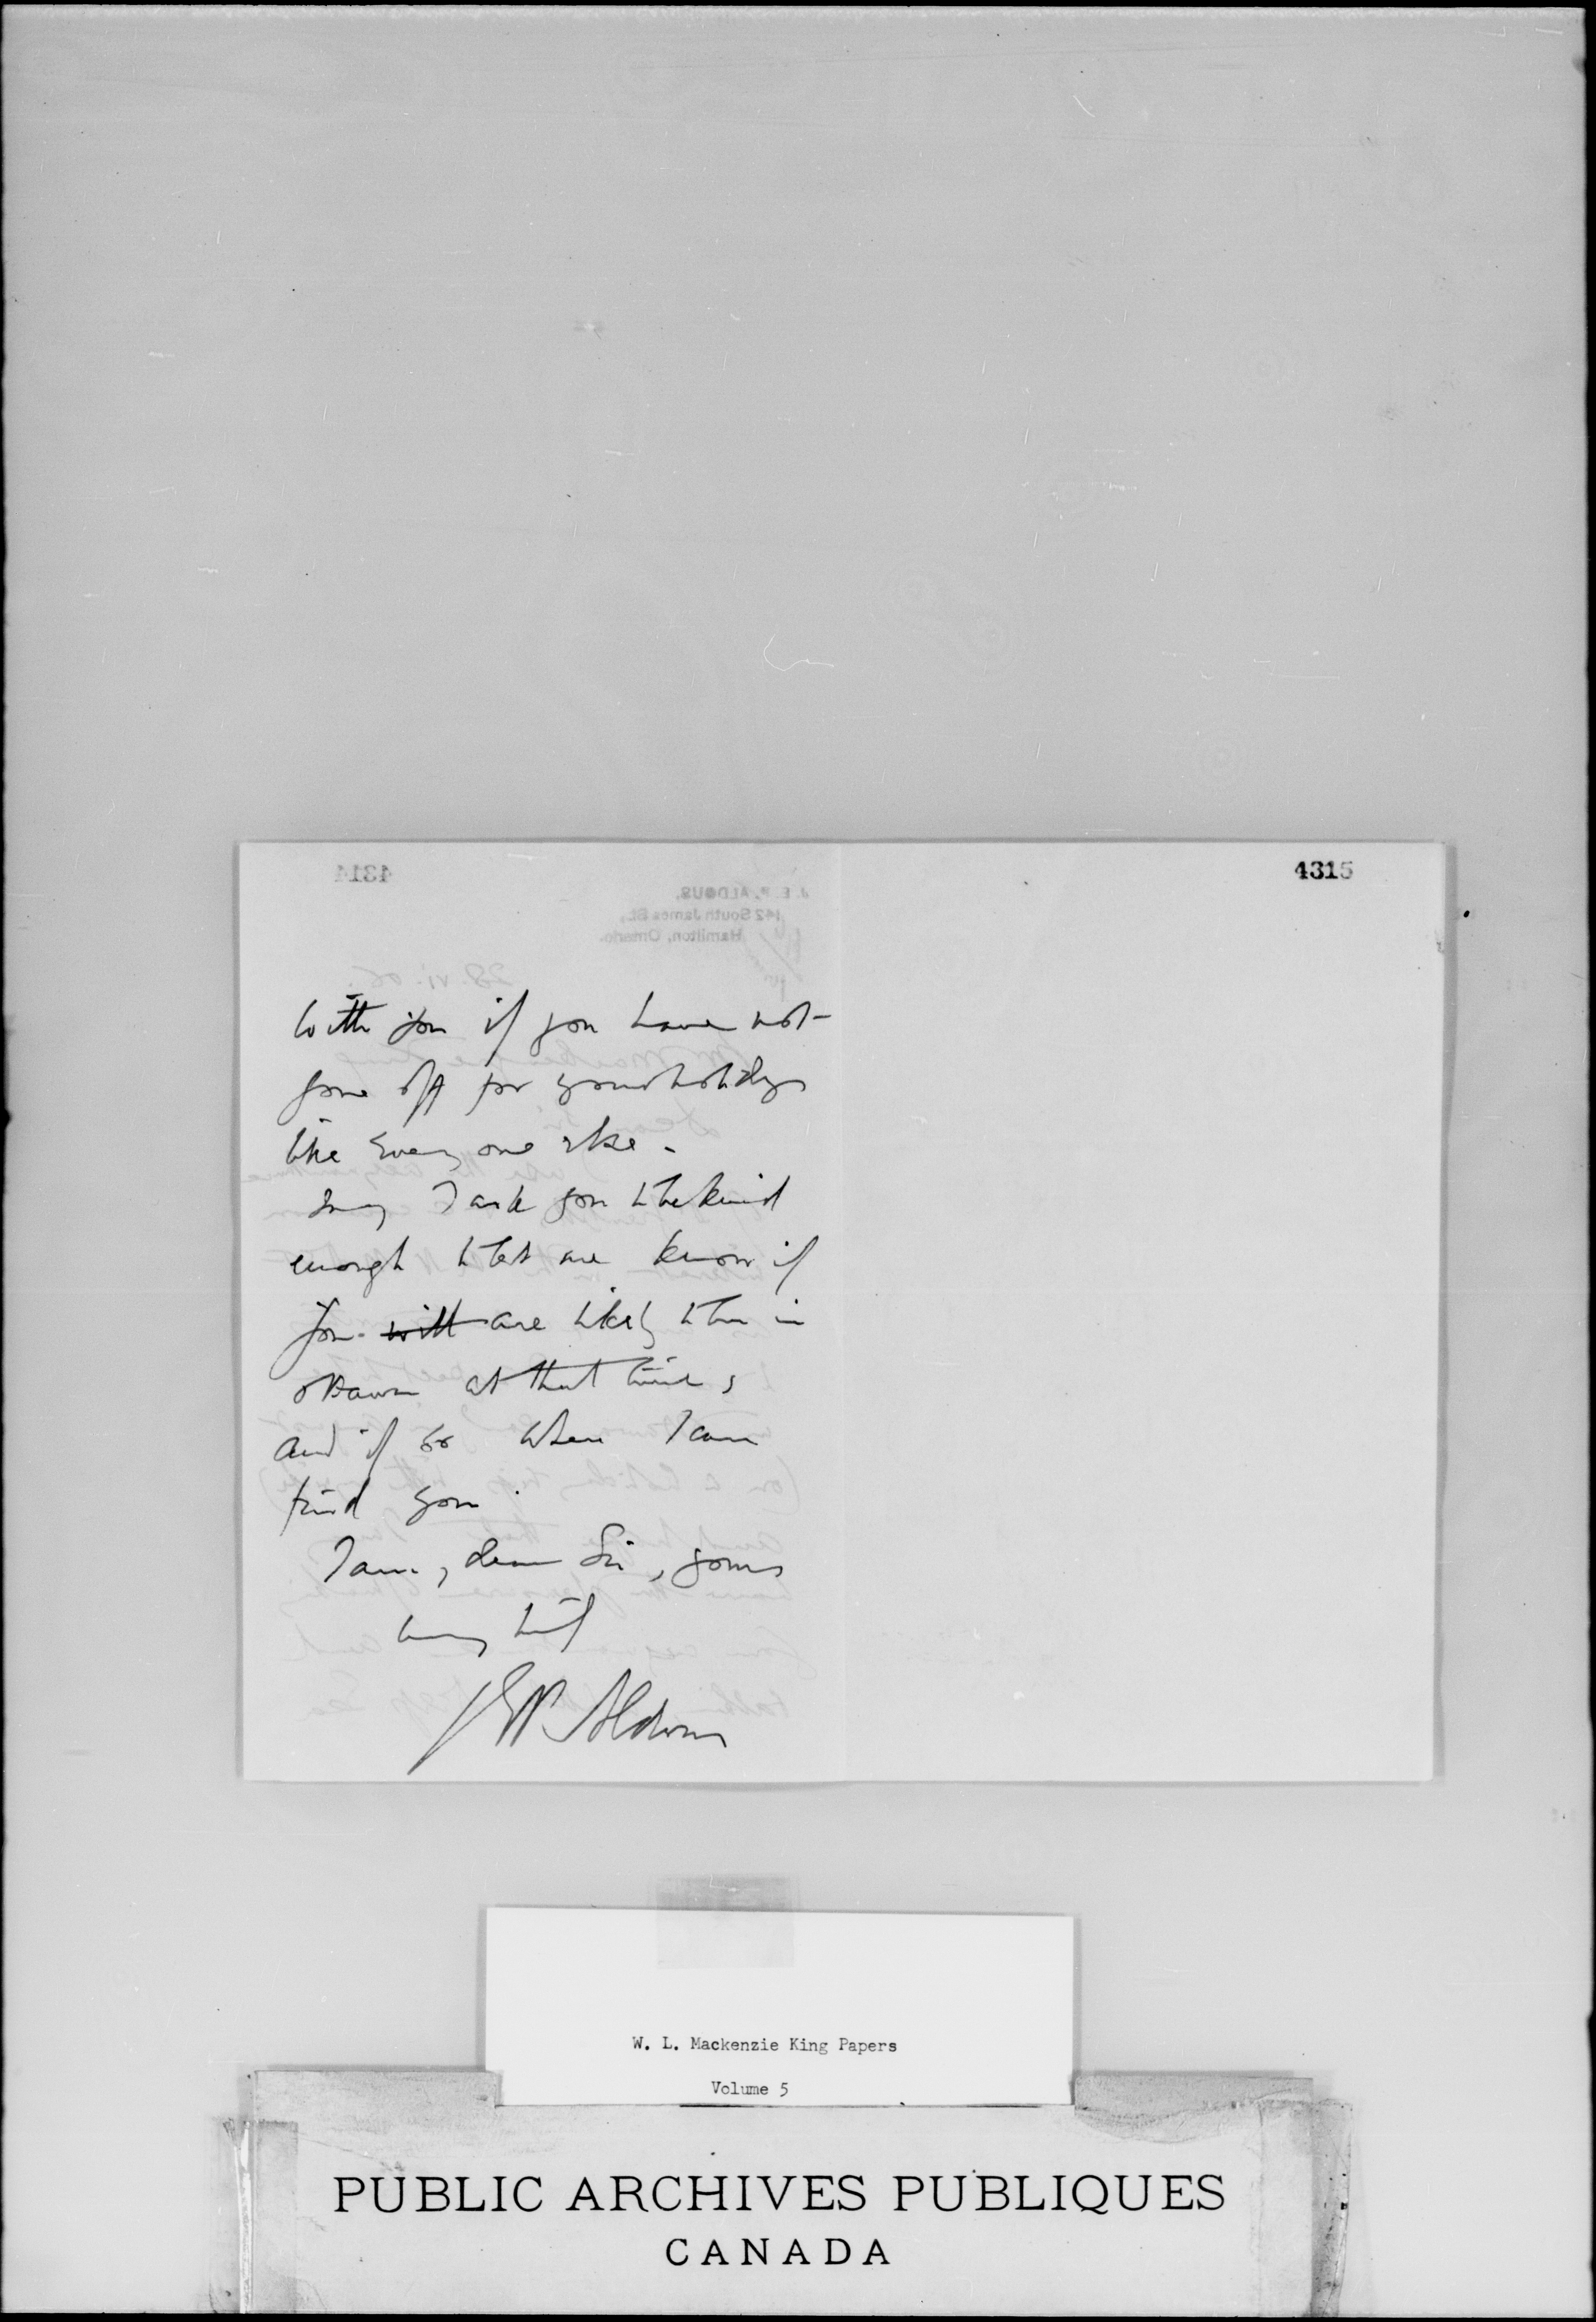 4315
with you if you have not
gone off for your holidays
like everyone else.
May I ask you to be kind
enough to let me know if
you will are likely to be in
Ottawa at that time,
and if so where I can
find you.
I am, dear Sir, yours
very truly
J E P Aldous
4314
J. E. P. ALDOUS,
142 South James St.,
Hamilton, Ontario.
28.vi.06.
W. L. Mackenzie King Papers
Volume 5
PUBLIC ARCHIVES PUBLIQUES
CANADA